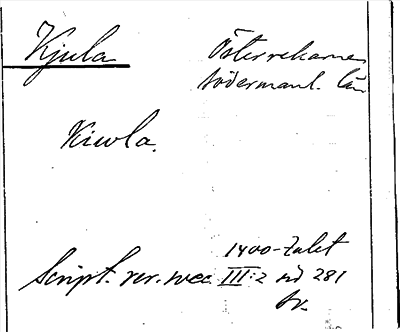 Kjula Österrekarne
Södermanl. län
Kiwla.
1400-talet
Script. rer. svec. III:2 sid 281